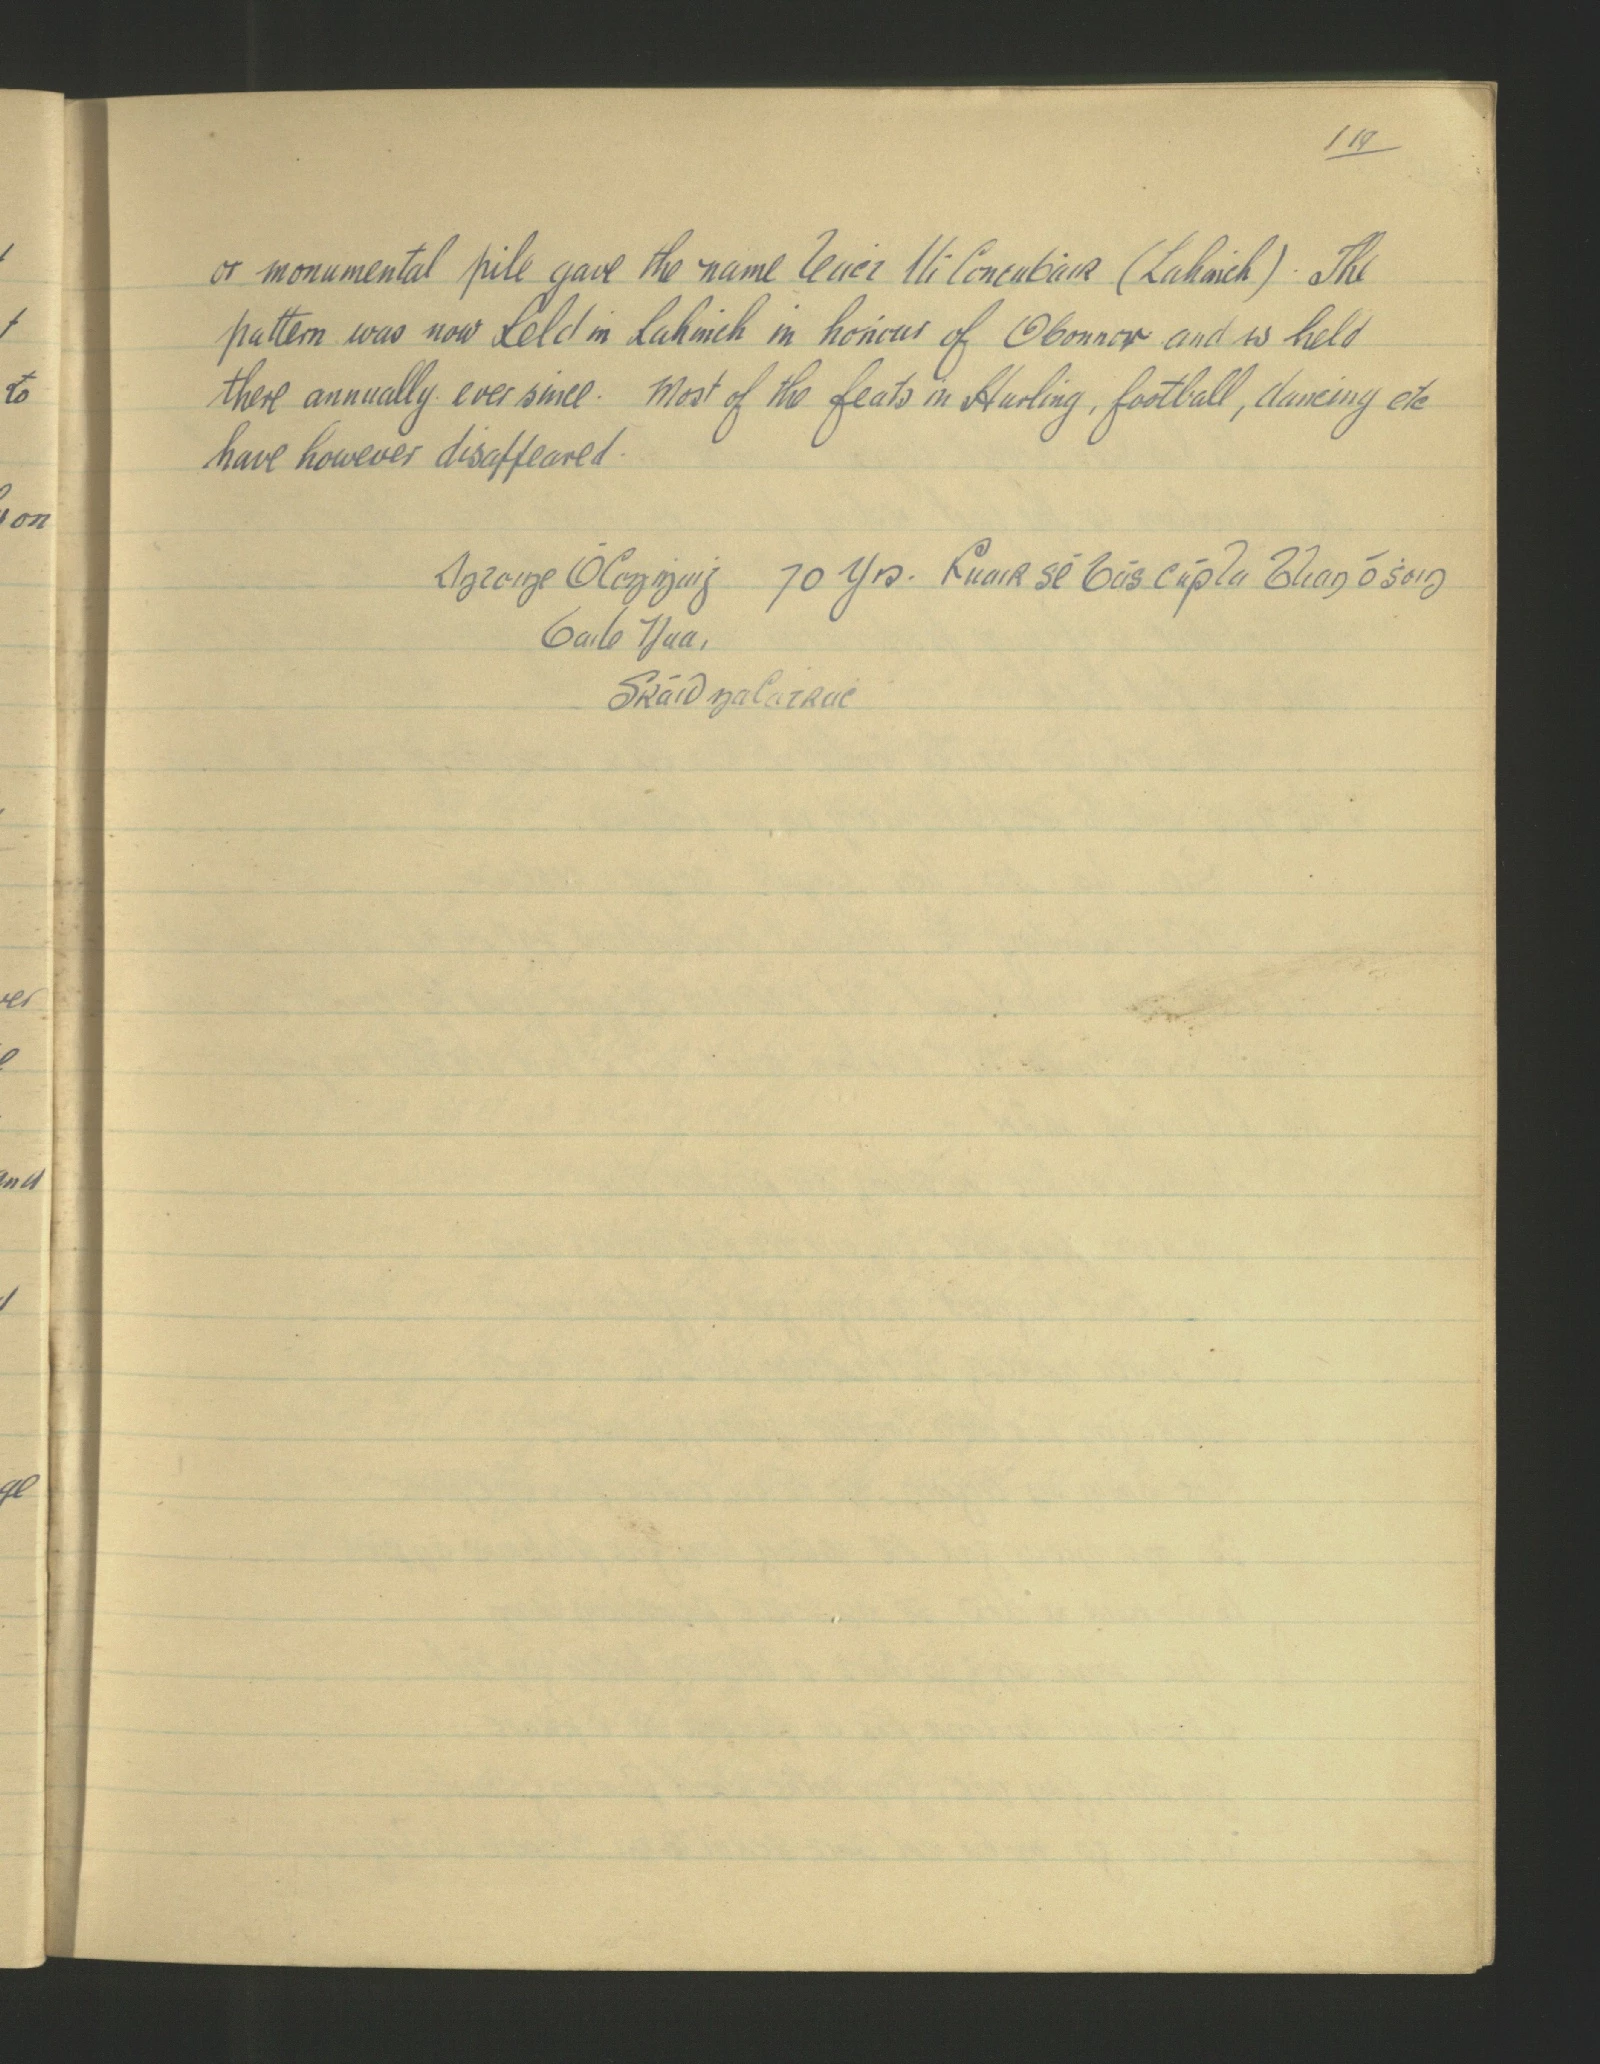 119
or monumental pile gave the name Leact Uí Concubair (Lahinch). The
pattern was now held in Lahinch in honour of OConnor and is held
there annually ever since. Most of the feats in Hurling, football, dancing etc
have however disappeared.
Antoine Ó 70 Yrs. Fuair sé bás cúpla bliain ó ṡoin
Baile Nua,
Sráid na Catrac
to
on
ver
and
ge